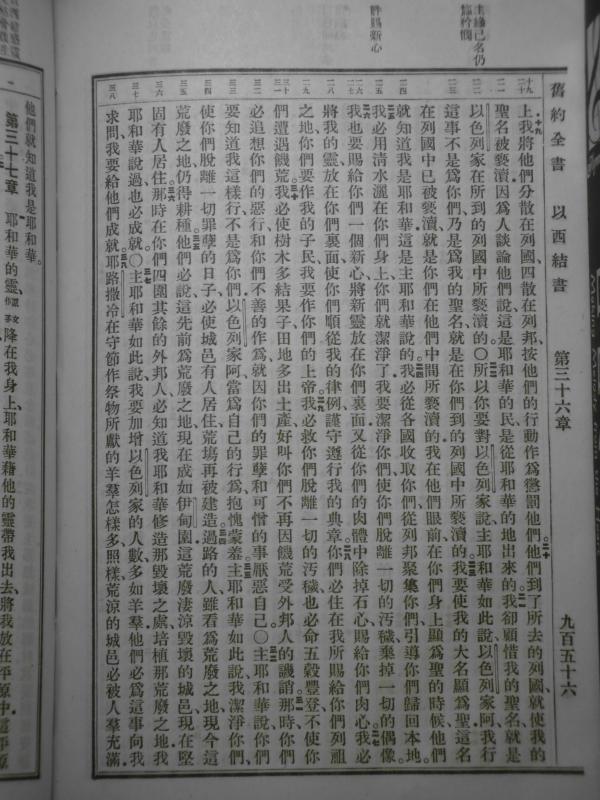 舊約全書　以西結書　第三十六章　九百五十六
上我將他們分散在列國四散在列邦按他們的行動作爲懲罰他們他們到了所去的列國就使我的
聖名被褻瀆因爲人談論他們說這是耶和華的民是從耶和華的地出來的我卻顧惜我的聖名就是
以色列家在所到的列國中所褻瀆的〇所以你要對以色列家說主耶和華如此說以色列家阿我行
這事不是爲你們乃是爲我的聖名就是在你們到的列國中所褻瀆的我要使我的大名顯爲聖這名
在列國中已被褻瀆就是你們在他們中間所褻瀆的我在他們眼前在你們身上顯爲聖的時候他們
就知道我是耶和華這是主耶和華說的我必從各國收取你們從列邦聚集你們引導你們歸回本地
我必用清水灑在你們身上你們就潔淨了我要潔淨你們使你們脫離一切的汚穢棄掉一切的偶像
我也要賜給你們一個新心將新靈放在你們裏面又從你們的肉體中除掉石心賜給你們肉心我必
將我的靈放在你們裏面使你們順從我的律例謹守遵行我的典章你們必住在我所賜給你們列祖
之地你們要作我的子民我要作你們的上帝我必救你們脫離一切的汚穢也必命五穀豐登不使你
們遭遇饑荒我必使樹木多結果子田地多出土產好叫你們不再因饑荒受外邦人的譏誚那時你們
必追想你們的惡行和你們不善的作爲就因你們的罪孽和可憎的事厭惡自己〇主耶和華說你們
要知道我這樣行不是爲你們以色列家阿當爲自己的行爲抱愧蒙羞主耶和華如此說我潔淨你們
使你們脫離一切罪孽的日子必使城邑有人居住荒塲再被建造過路的人雖看爲荒廢之地現今這
荒廢之地仍得耕種他們必說這先前爲荒廢之地現在成如伊甸園這荒廢淒涼毀壞的城邑現在堅
固有人居住那時在你們四圍其餘的外邦人必知道我耶和華修造那毀壞之處培植那荒廢之地我
耶和華說過也必成就〇主耶和華如此說我要加增以色列家的人數多如羊羣他們必爲這事向我
求問我要給他們成就耶路撒冷在守節作祭物所獻的羊羣怎樣多照樣荒涼的城邑必被人羣充滿
他們就知道我是耶和華
第三十七章　耶和華的靈降在我身上耶和華藉他的靈帶我出去將我放在平原中